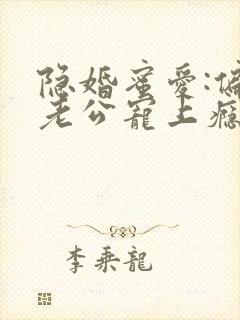 隐婚蜜爱:偏
老公宠上瘾
李乘龍